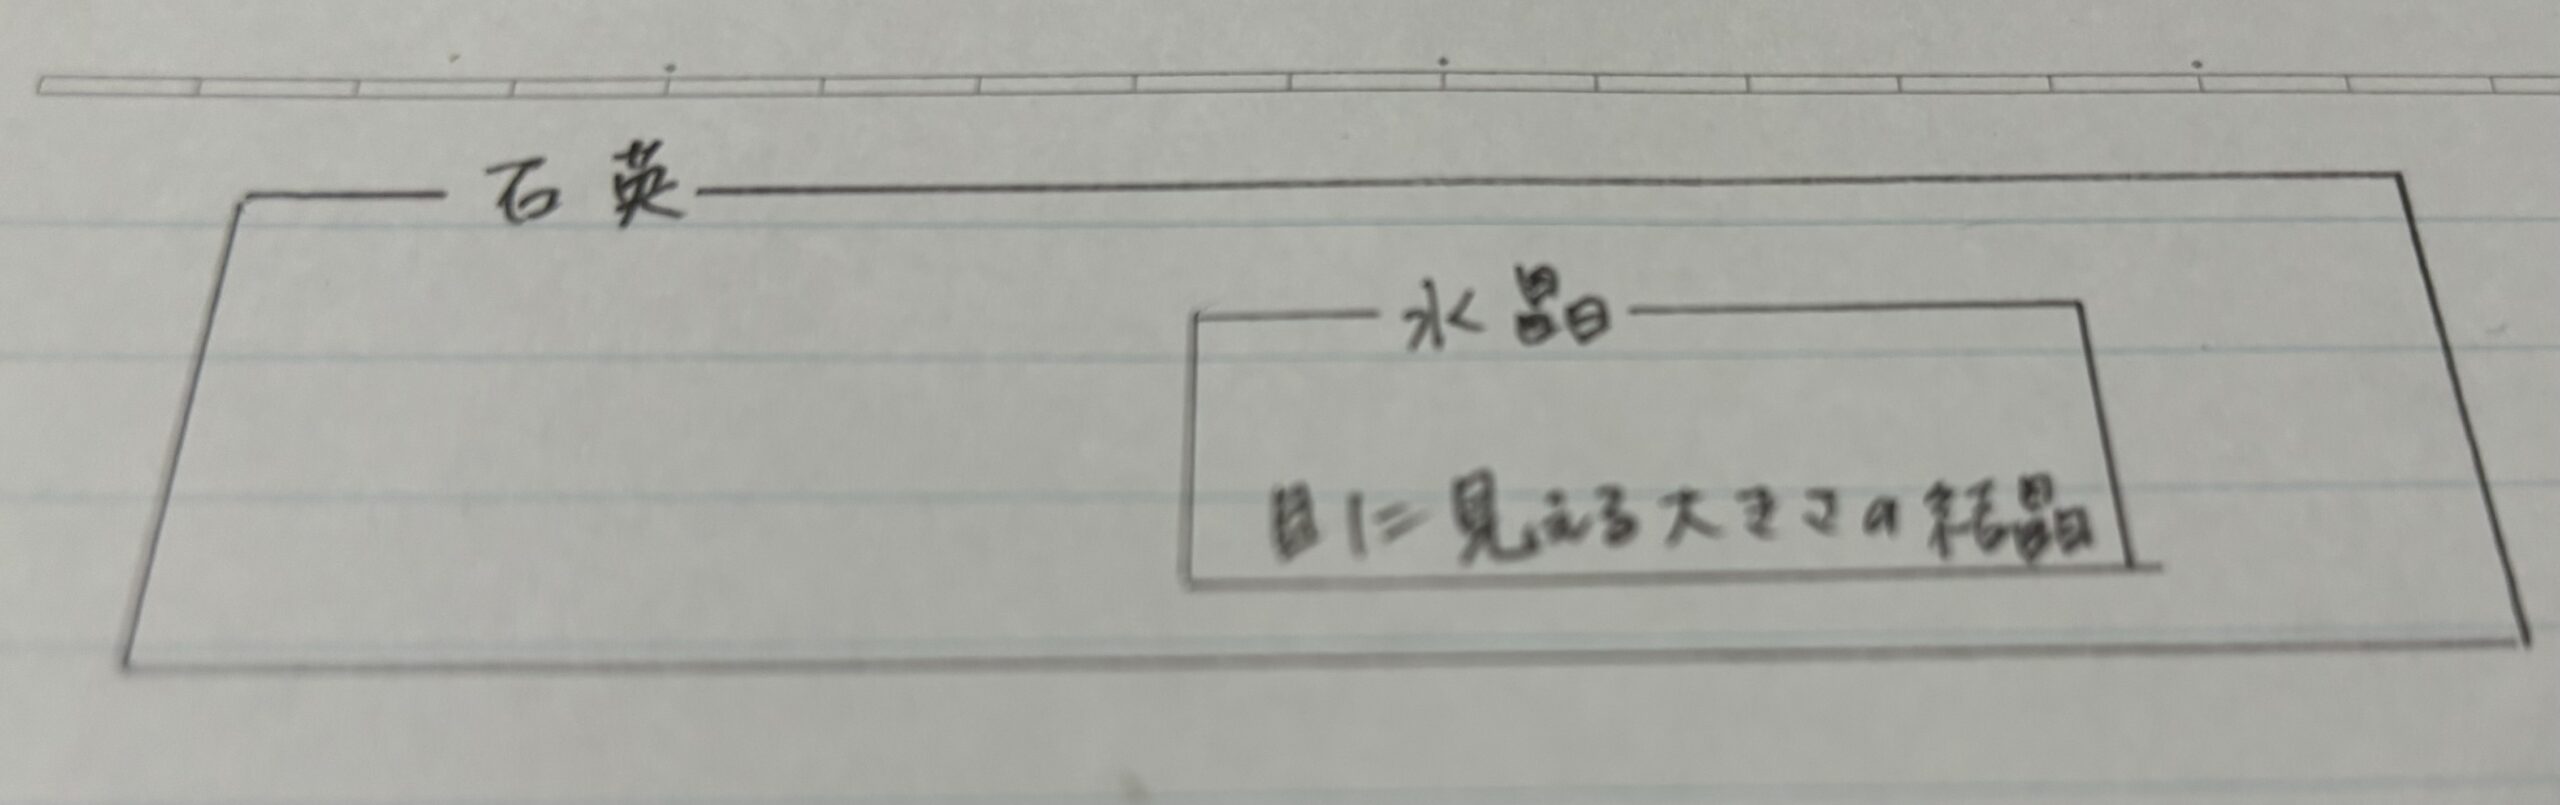 石英
水晶
目に見える大きさの結晶